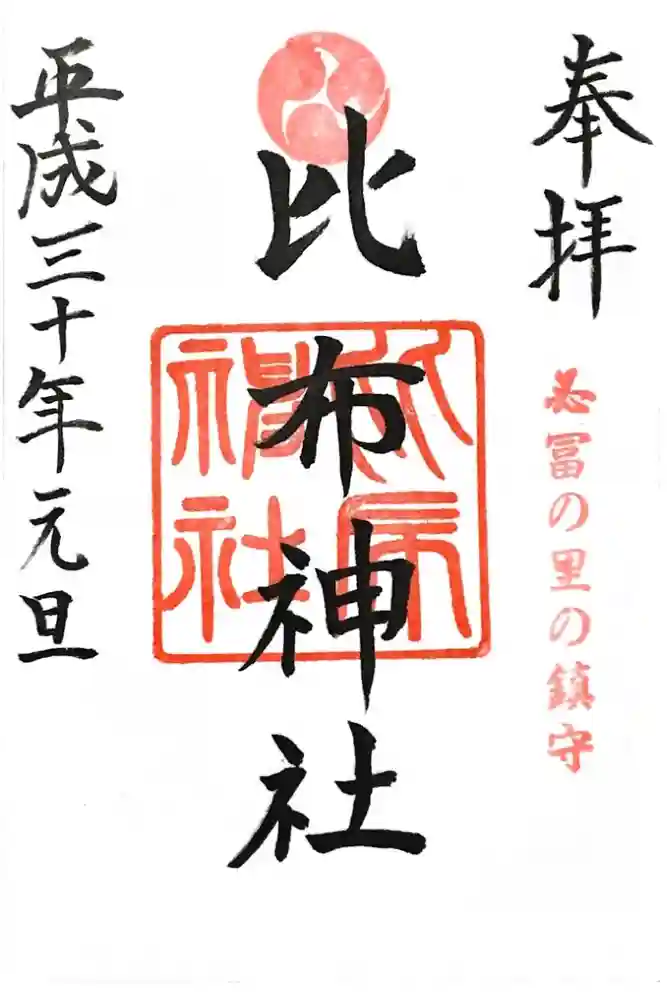 奉拝
必冨の里の鎮守
比布神社
比布神社
平成三十年元旦